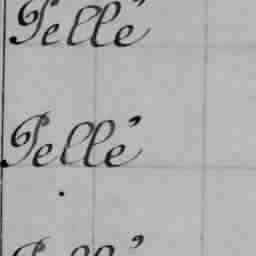 Pellé
Pellé